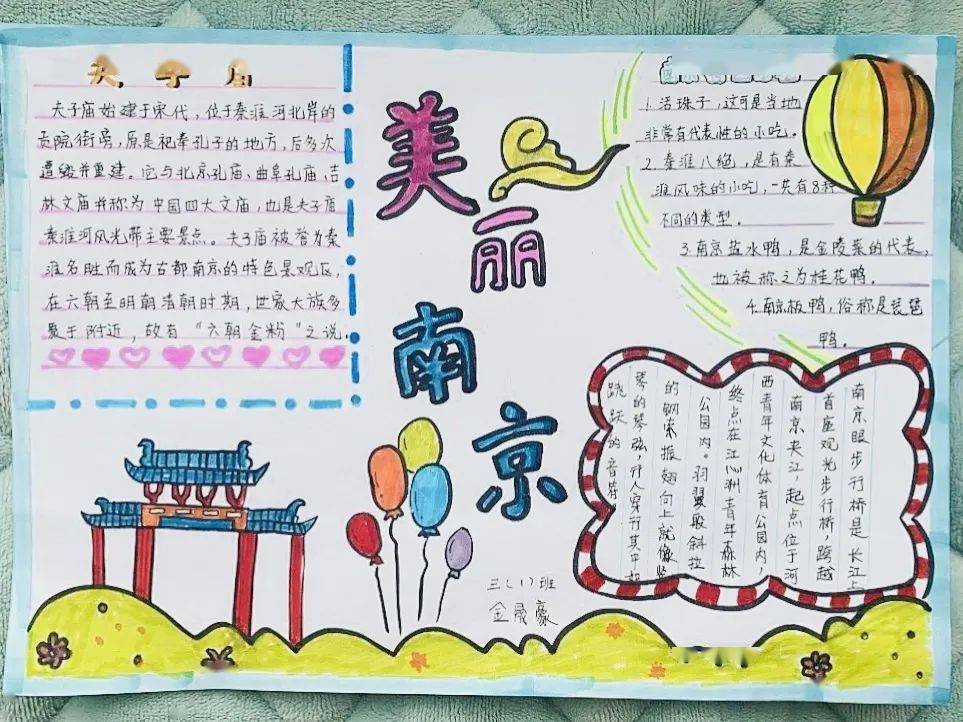 夫子庙
夫子庙始建于宋代，位于秦淮河北岸的
贡院街旁，原是祀奉孔子的地方，后多次
遭毁并重建。它与北京孔庙、曲阜孔庙、吉
林文庙并称为中国四大文庙，也是夫子庙
秦淮河风光带主要景点。夫子庙被誉为秦
淮名胜而成为古都南京的特色景观区，
在六朝至明朝清朝时期，世家大族多
聚于附近，故有“六朝金粉”之说。
美
丽
南
京
1. 活珠子，这可是当地
非常有代表性的小吃。
2. 秦淮八绝，是有秦
淮风味的小吃，一共有8种
不同的类型。
3. 南京盐水鸭，是金陵菜的代表，
也被称之为桂花鸭。
4. 南京板鸭，俗称是琵琶
鸭。
南京眼步行桥是长江上
首座观光步行桥，跨越
南京夹江，起点位于河
西青年文化体育公园内，
终点在江心洲青年森林
公园内。羽翼般斜拉
的钢索振翅向上就像竖
琴的琴弦，行人穿行其中如
跳跃的音符
三（1）班
金晟豪